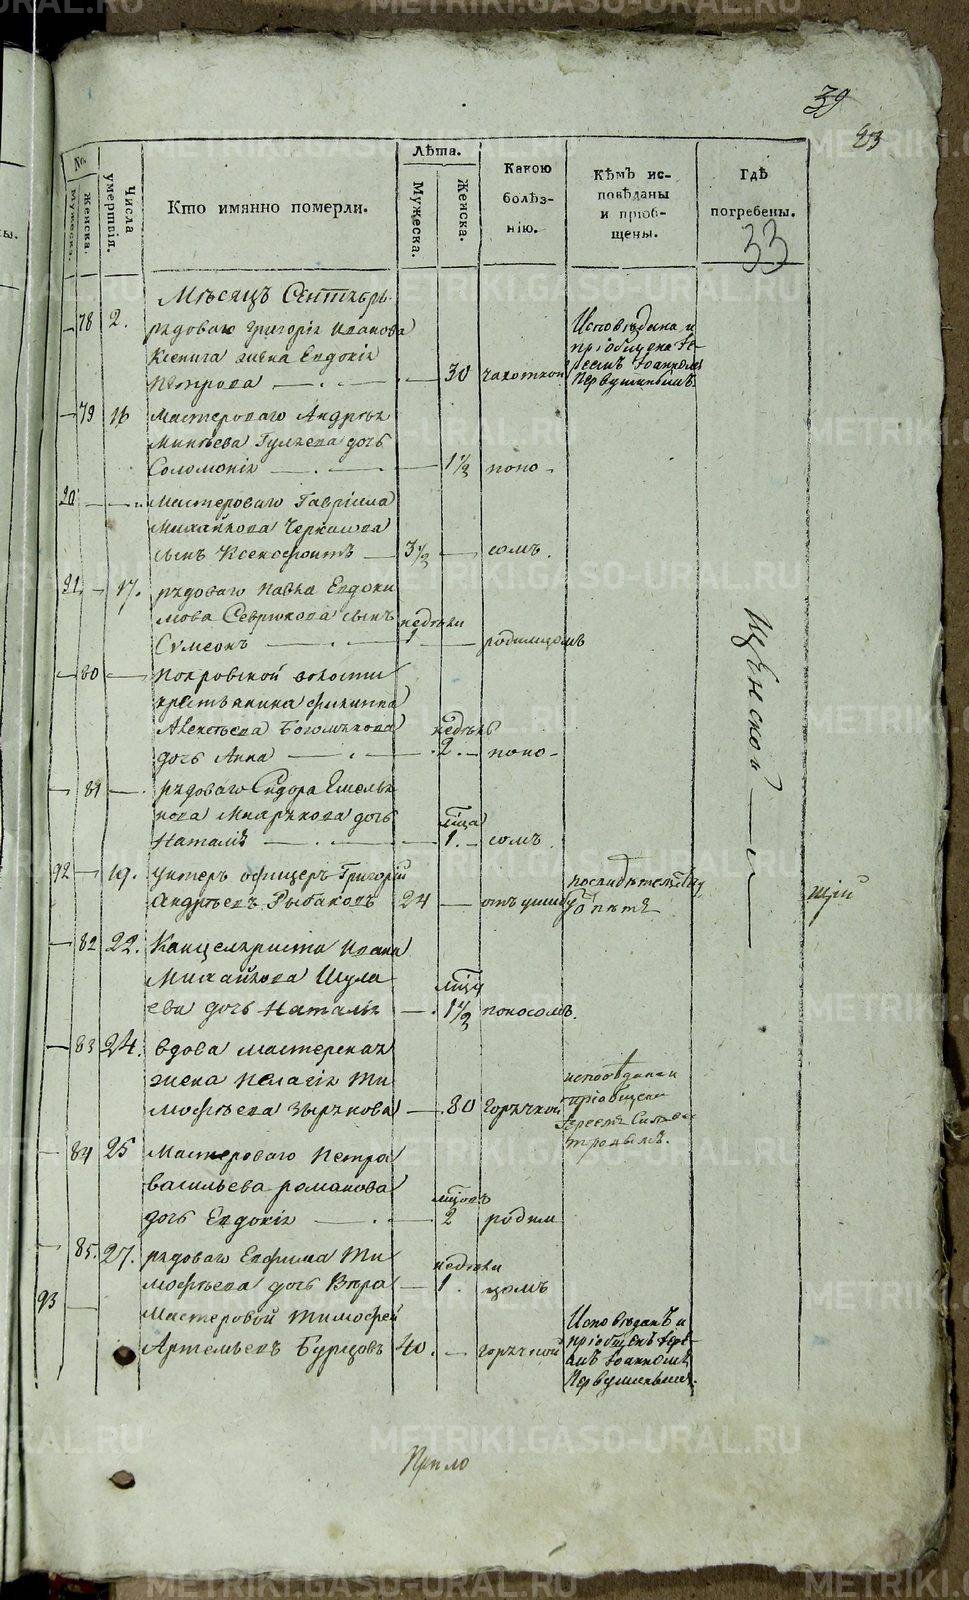 39
23
№.
Мужеска.
Женска.
Числа умертвія.
Кто имянно померли.
Лѣта.
Мужеска.
Женска.
Какою болѣз-
нію.
Кѣмъ ис-
повѣданы
и пріоб-
щены.
Гдѣ
погребены.
33
Мѣсяцъ Сентябрь.
— 78 2. рядоваго Григорія Иванова
Ксенига жена Евдокія
Петрова — — 30 чахоткою
Исповѣдана и
пріобщена Іе-
реемъ Іоанномъ
Первушинымъ.
— 79 16 Мастероваго Андрея
Минѣева Гуляева дочь
Соломонія — — 1 1/2 поно-
90 — — Мастероваго Гавріила
Михайлова Черкасова
сынъ Ксенофонтъ — 3 1/2 — сомъ.
91. — 17. рядоваго Павла Евдоки
мова Севрюкова сынъ
Сѵмеонъ — недѣли 1 — родимцомъ
— 80 — Покровской волости
крестьянина Филиппа
Авксентьева Боголюбова
дочь Анна — недѣль 2. — поно-
— 81 — рядоваго Сидора Емелья
нова дочь
Наталія — мѣсяца 1. — сомъ
92 — 19. Унтеръ офицеръ Григорій
Андреевъ Рыбаковъ 24 — отъ ушибу
— 82 22. Канцеляриста Ивана
Михайлова Шула
ева дочь Наталія — мѣсяц 1 1/2 поносомъ.
— 83 24. вдова мастерская
жена Пелагія Ти
мофѣева Зырянова — 80 горячкой
исповѣдана и
пріобщена
Іереемъ
— 84 25 Мастероваго Петра
Васильева Романова
дочь Евдокія — мѣсяцовъ 2 родим
— 85. 27. рядоваго Ефима Ти
мофѣева дочь Вѣра — недѣли 1. цомъ
93 — Мастеровой Тимофей
Артемьевъ Бурцовъ 40. — горячкой
Исповѣданъ и
пріобщенъ Іере-
емъ Іоанномъ
Первушинымъ.
щій
Прило
METRIKI.GASO-URAL.RU